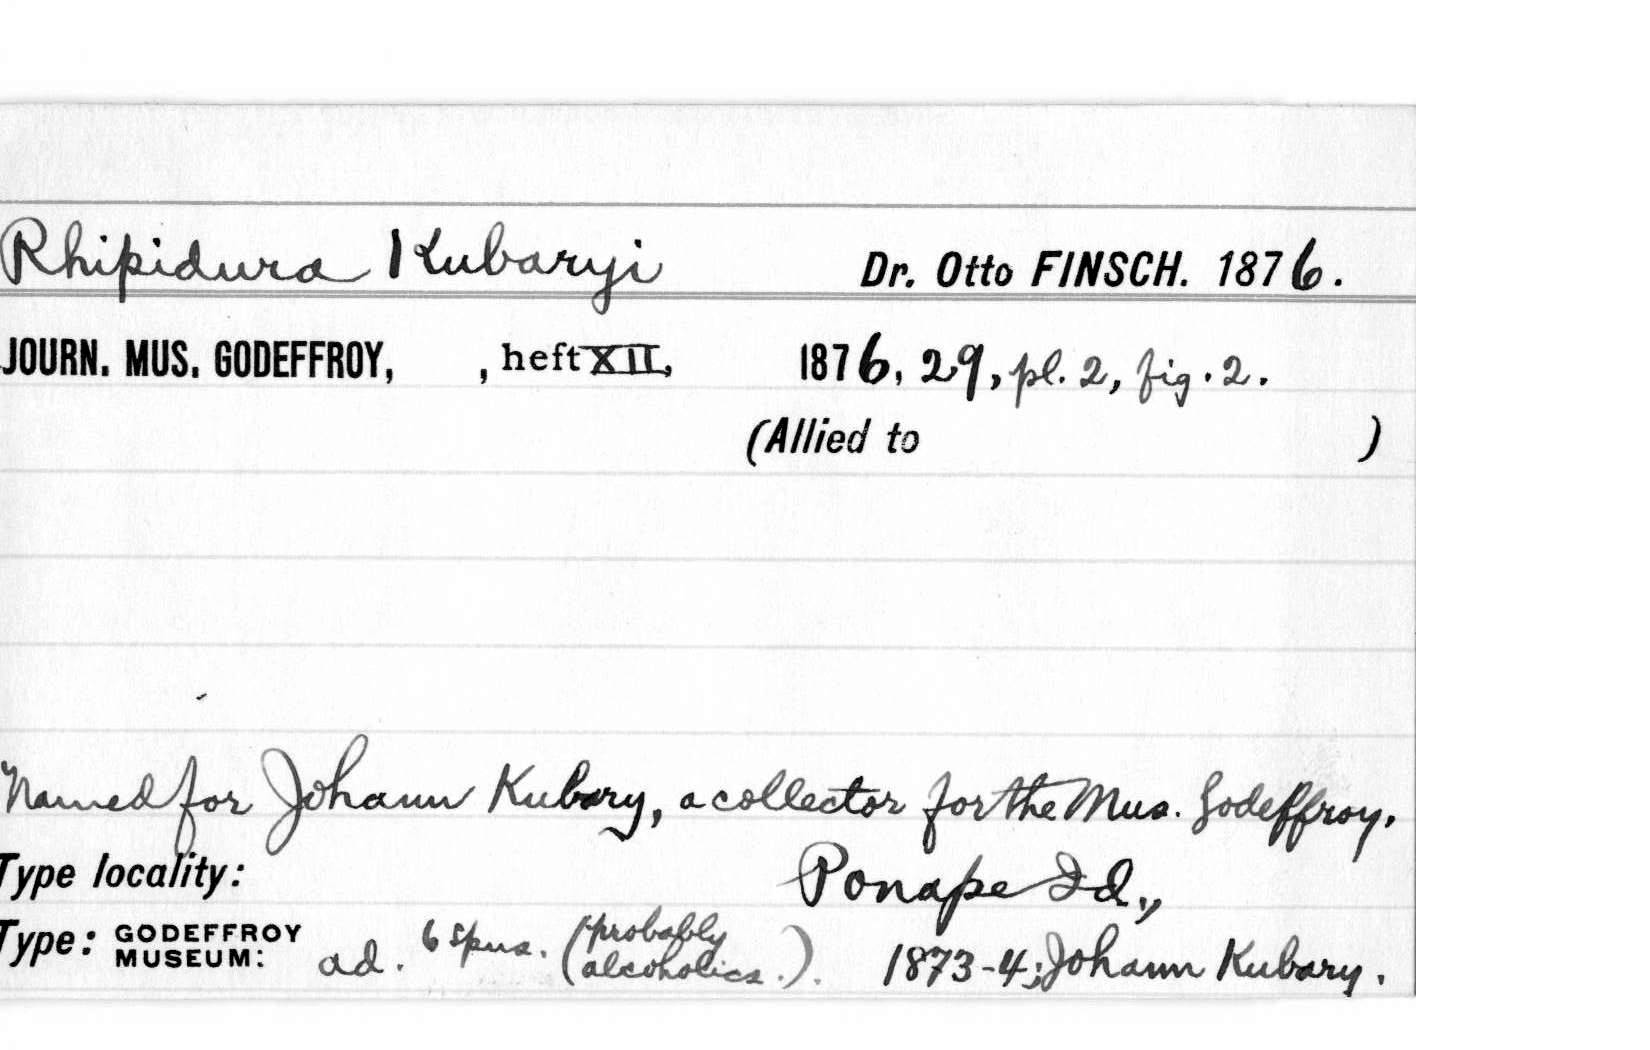 Rhipidura Kubaryi Dr. Otto FINSCH. 1876.
JOURN. MUS. GODEFFROY, , heft XII, 1876, 29, pl. 2, fig. 2.
(Allied to )
Named for Johann Kubary, a collector for the Mus. Godeffroy.
Type locality: Ponape Id.,
Type: GODEFFROY MUSEUM: ad. 6 spns. (probably alcoholics.). 1873-4; Johann Kubary.